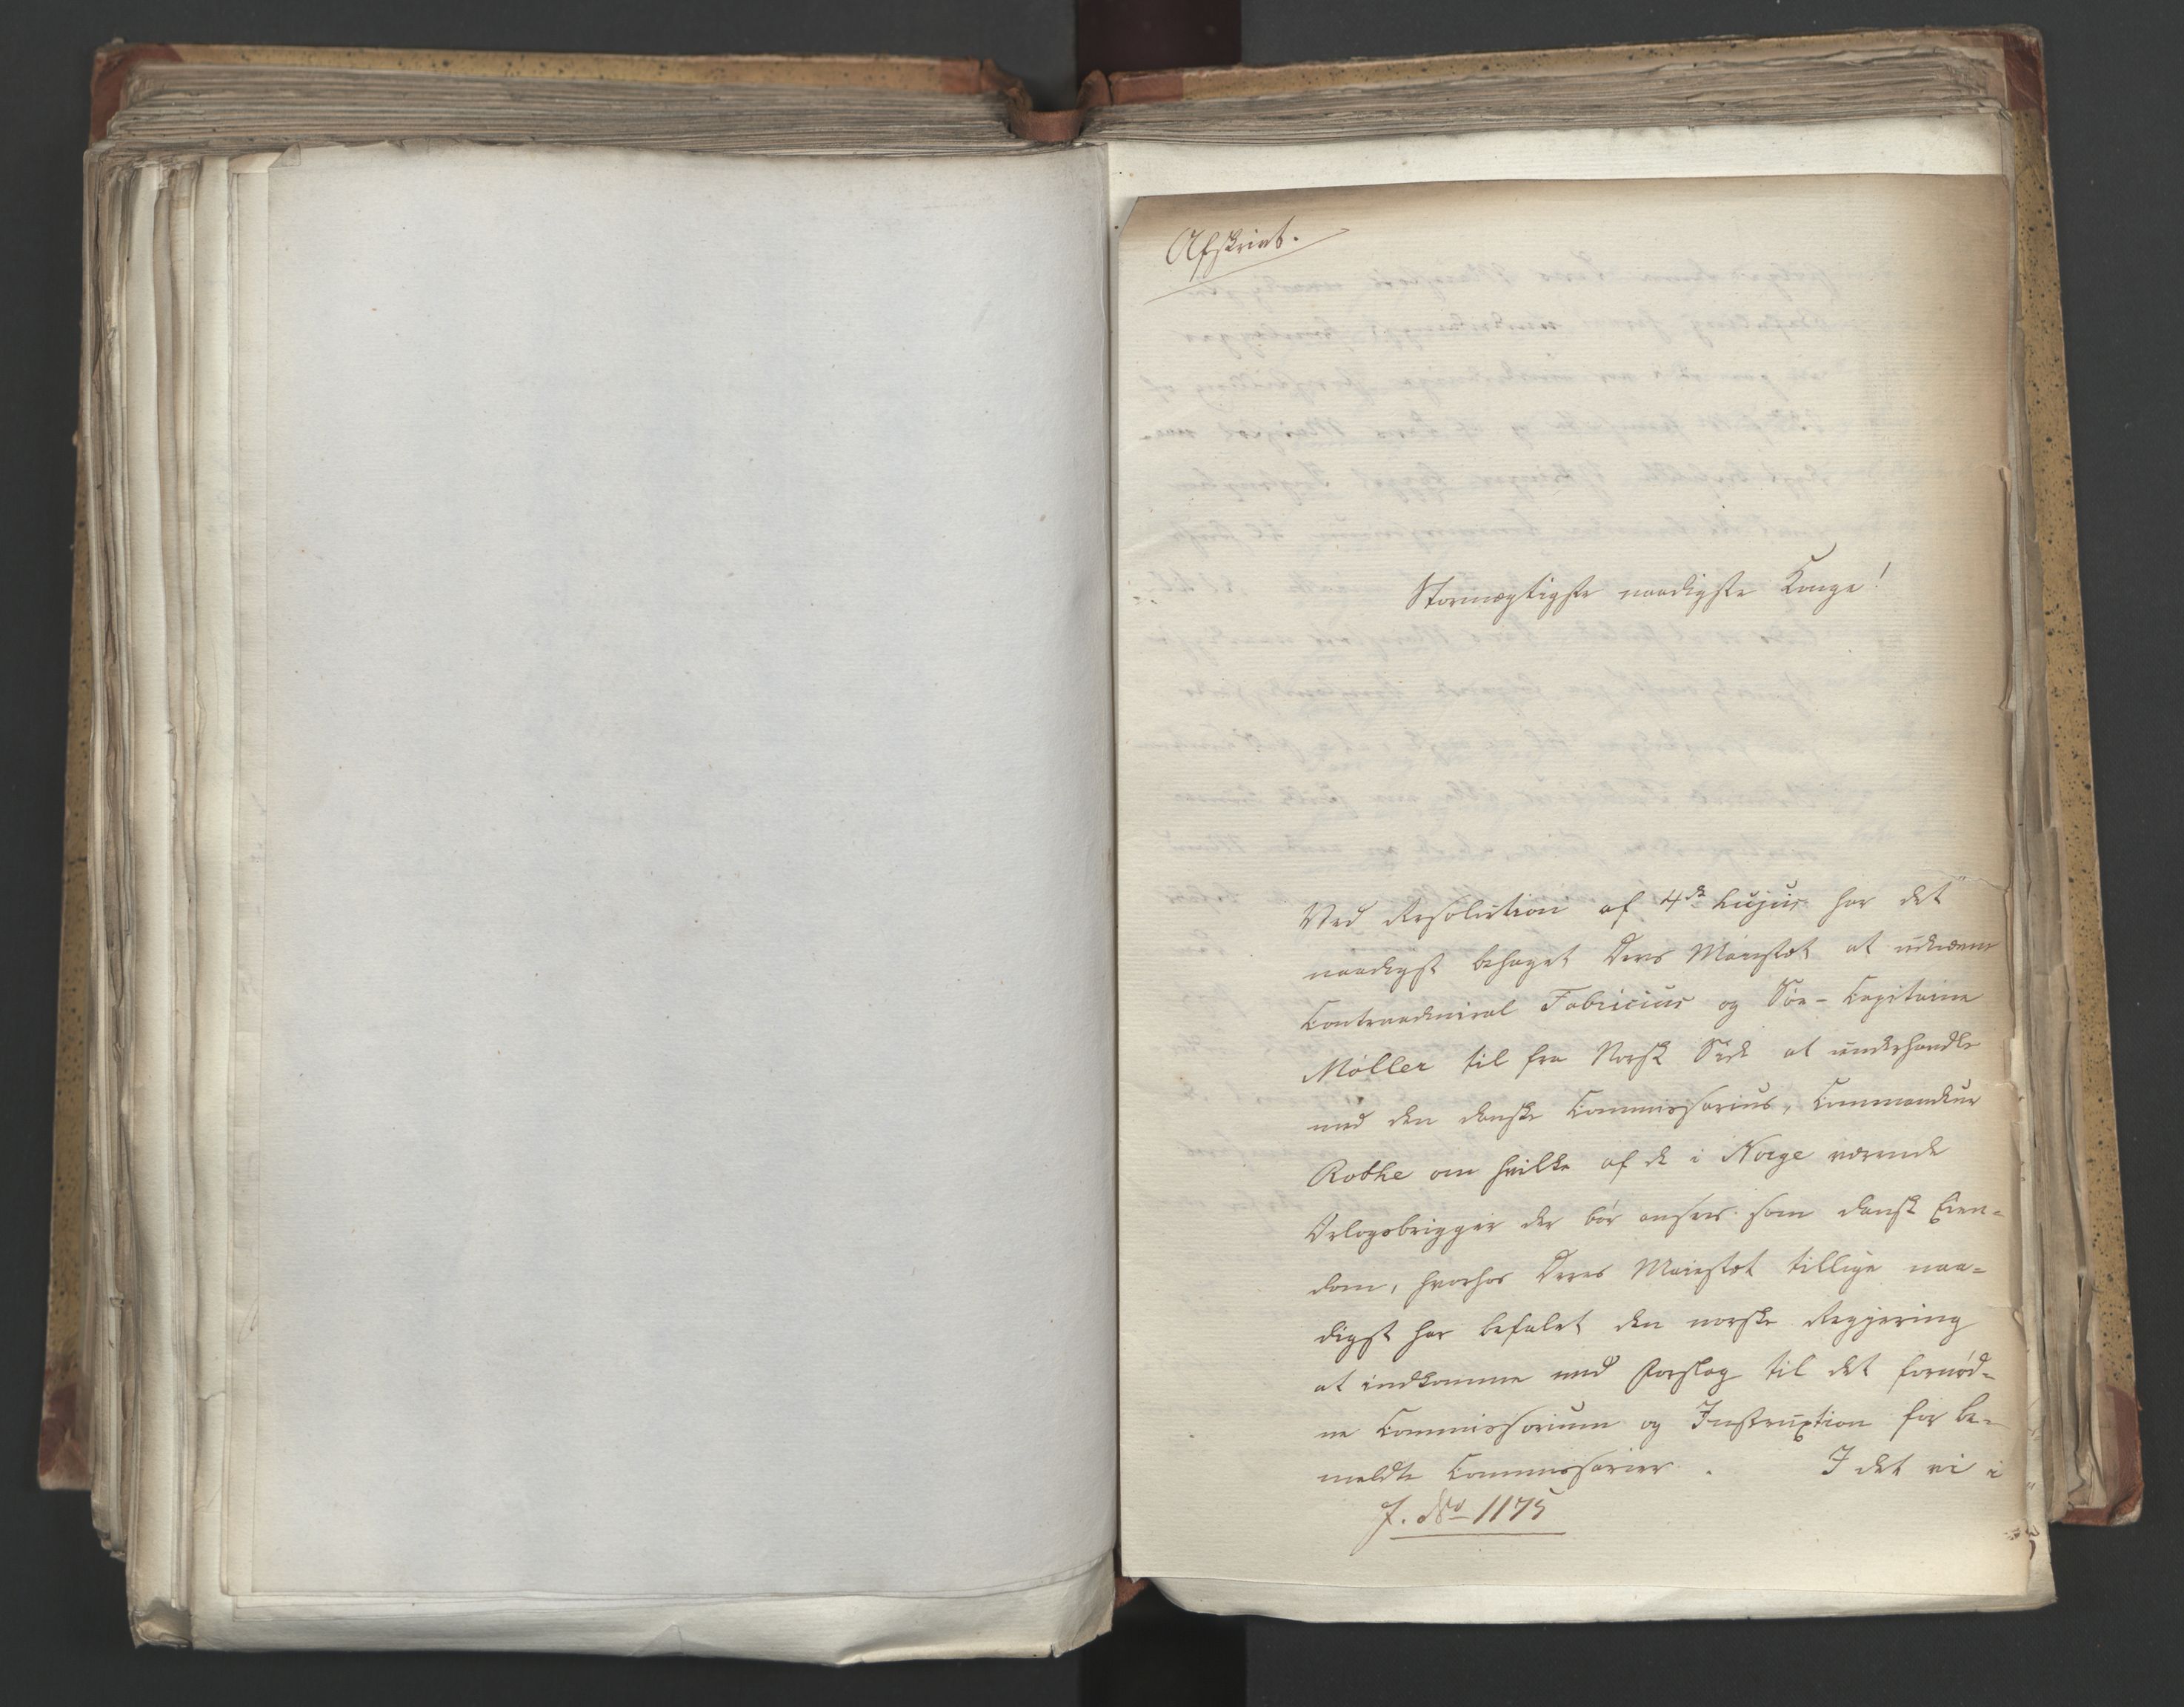 Afskrivt.
Stormægtigste naadigste Konge!
Ved Resolution af 4de hujus har det
naadigst behaget Deres Maiestæt at udnævne
Contraadmiral Fabricius og Söe-Capitaine
Möller til fra Norsk Side at underhandle
med den danske Commissarius, Commandeur
Rothe om hvilke af de i Norge værende
Orlogsbrigger der bör ansees som dansk Eien-
dom, hvorhos Deres Maiestæt tillige naa-
digst har befalet den norske Regjering
at indkomme med Forslag til det fornöd-
ne Commissorium og Instruxtion for be-
meldte Commissarier. I det vi i
J. No 1175